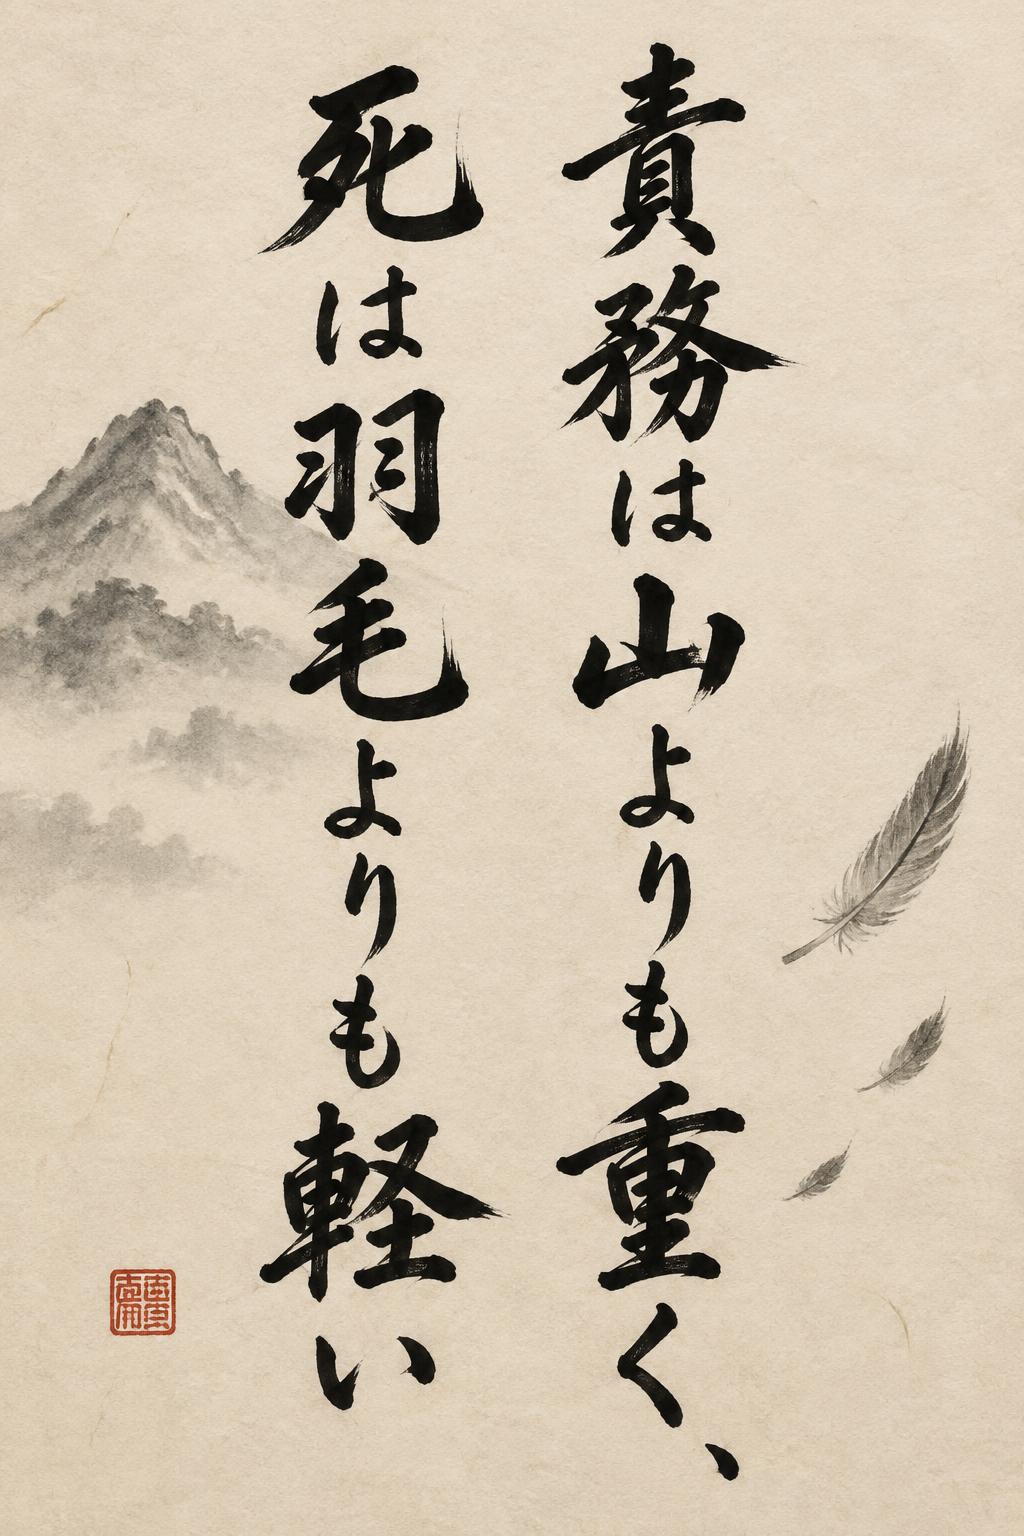 責務は山よりも重く、
死は羽毛よりも軽い